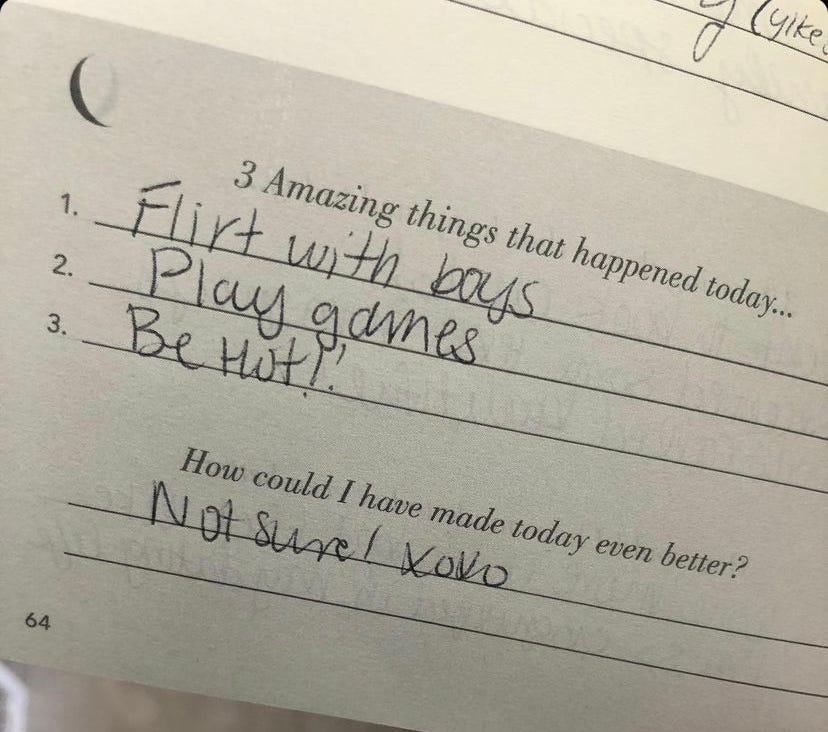 (yike
3 Amazing things that happened today...
1. Flirt with boys
2. Play games
3. Be Hot!!
How could I have made today even better?
Not sure! xoxo
64